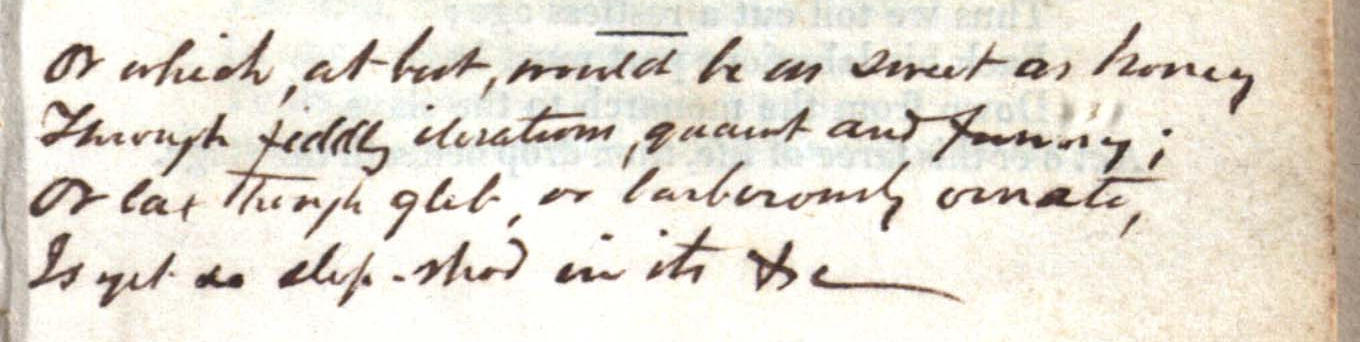 Or which, at best, would be as sweet as honey
Through fiddly iterations, quaint and funny;
Or lax though glib, or barbarously ornate,
Is yet so slip-shod in its &c